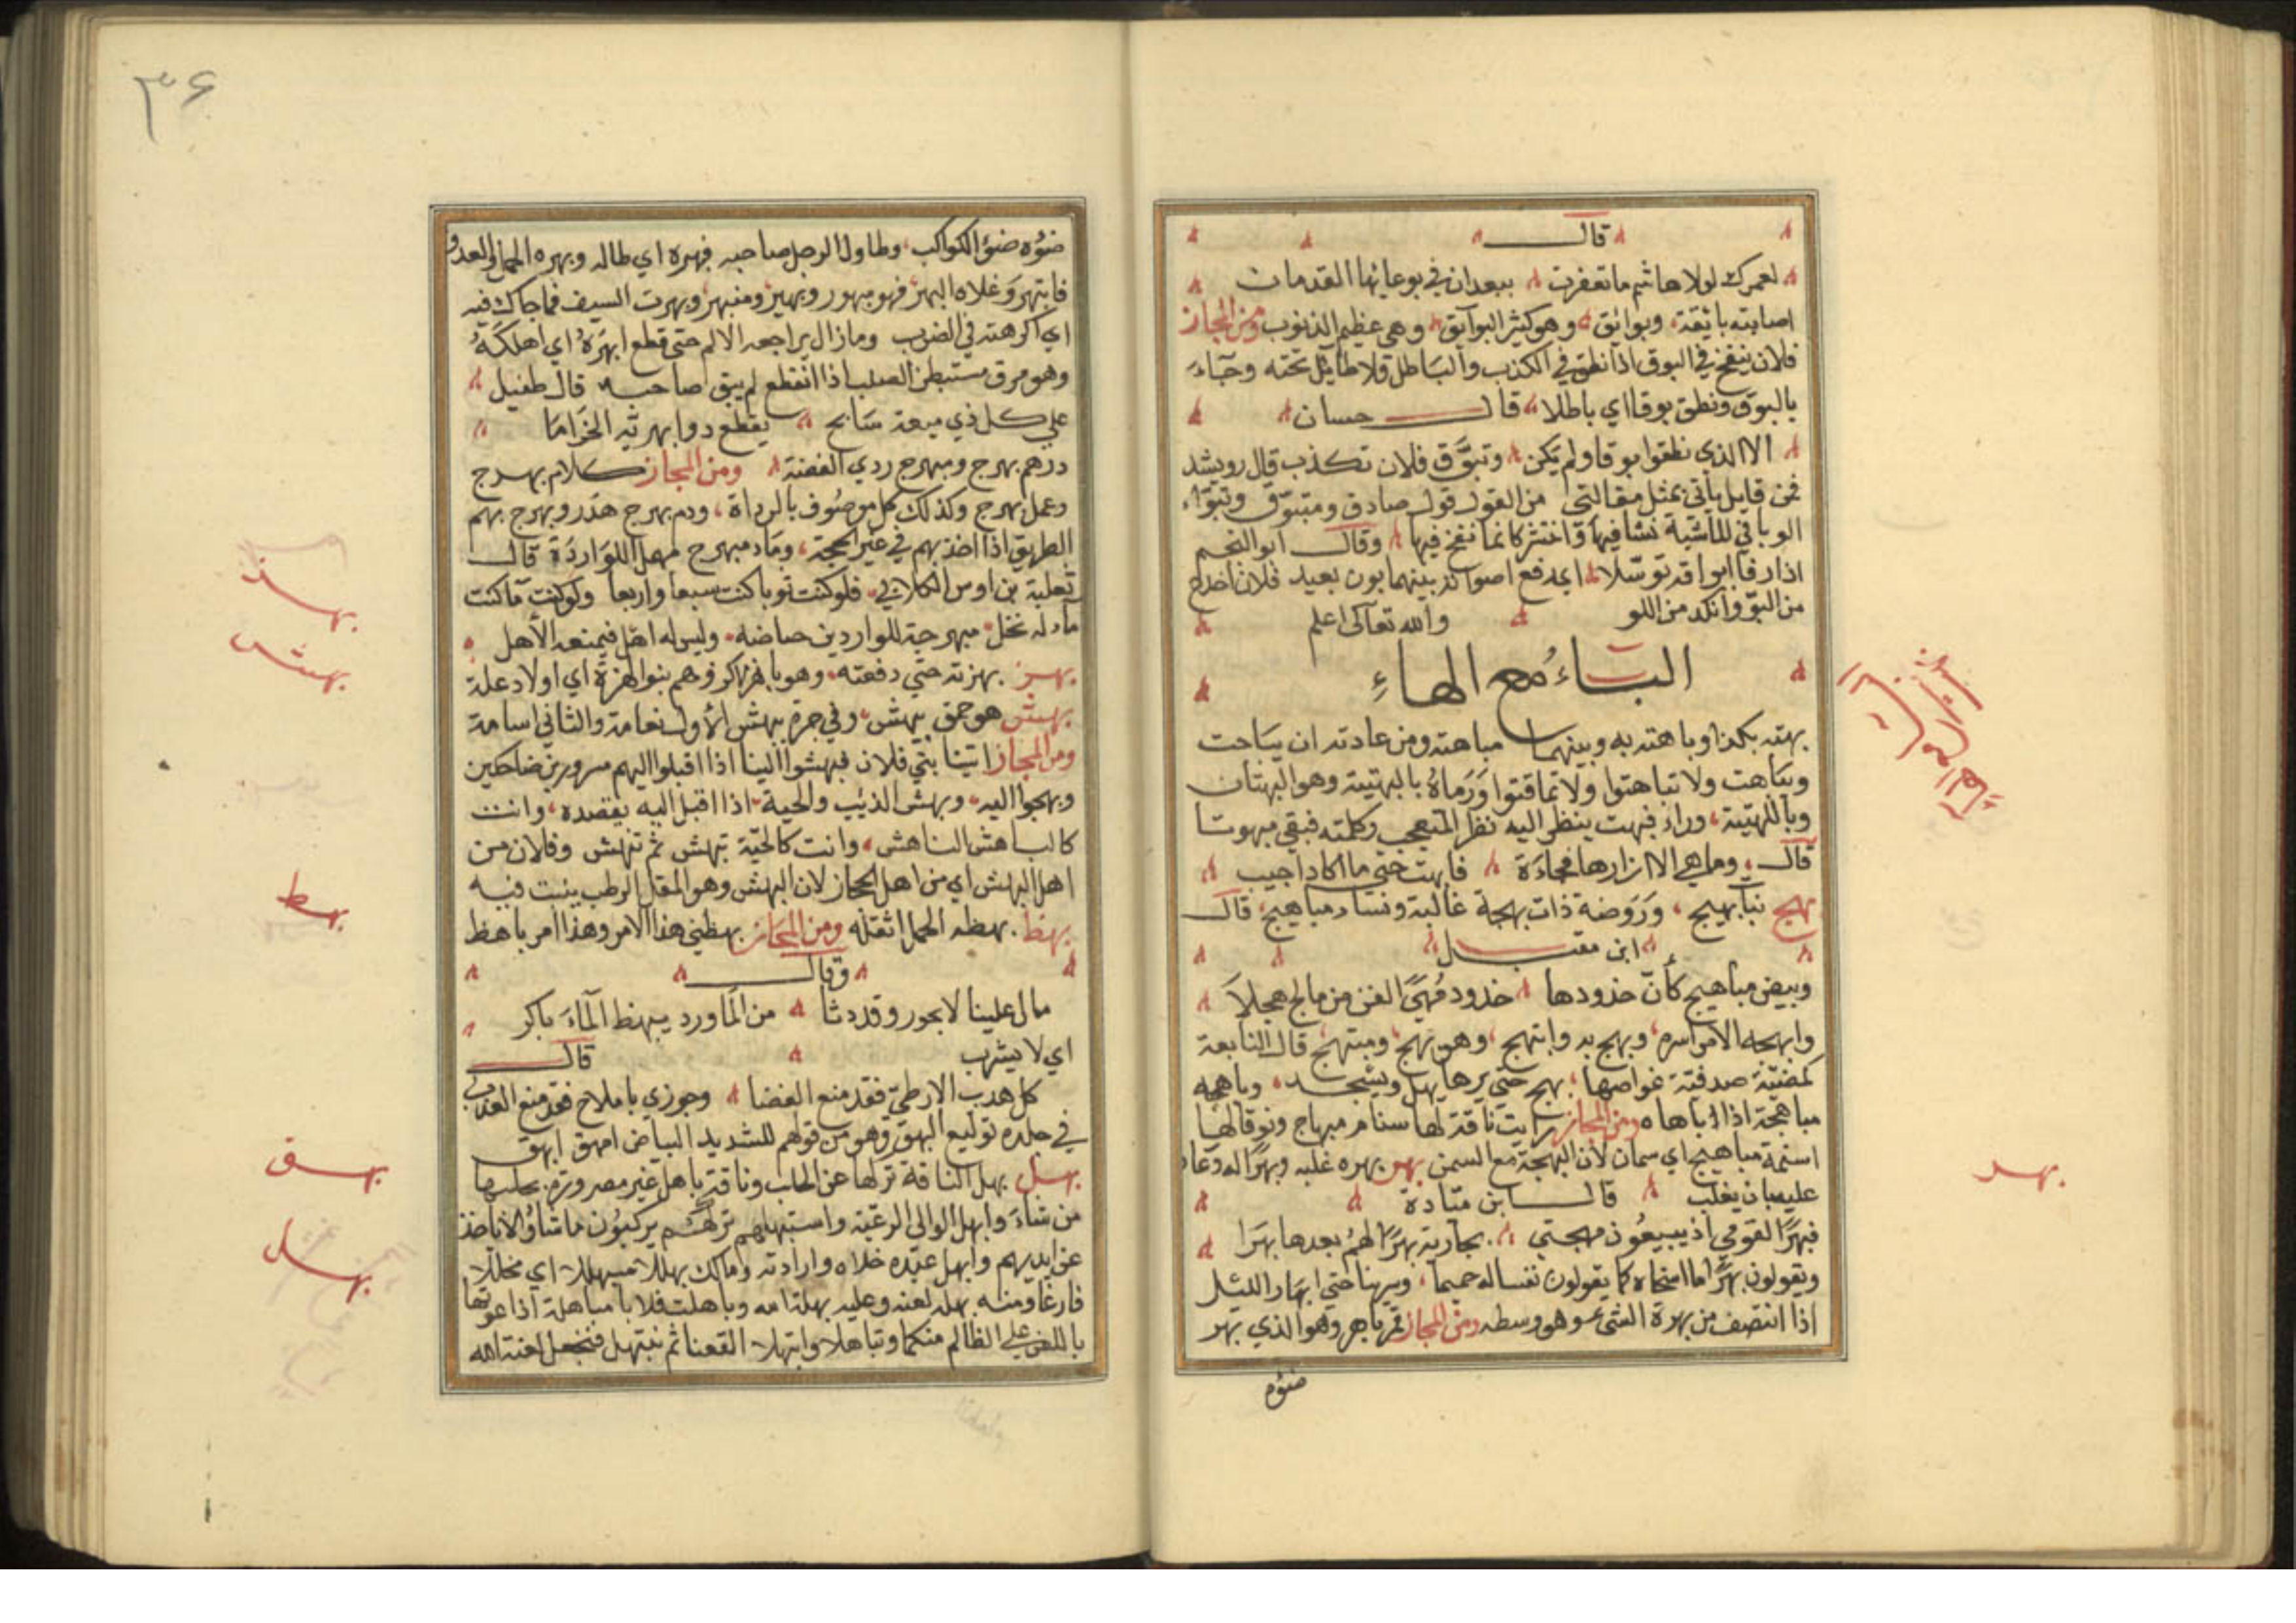 قال
لعمرك لولا هاشم ما تعفرت ببعدان في بوعائها القدمان
اصابته بائقة وبوائق وهو كثير البوائق وهي عظيم الذنوب ومن المجاز
فلان ينفخ في البوق اذا نطق في الكذب والباطل ولا طائل تحته وجاء
بالبوق ونطق بوقا اي باطلا قال حسان
الا الذي نطقوا بوقا ولم يكن وتبوق فلان تكذب قال رويشد
فمن قايل ياتي بمثل مقالتي من القول قول صادق ومتبوق وتبوق
الوبا في الماشية نشا فيها وانتشر كانما نفخ فيها وقال ابو النجم
اذا رقا ابواقه توسلا اي رفع اصواته بينهما بون بعيد فلان اخدع
من البو وانكد من اللو والله تعالى اعلم
الباء مع الهاء
بهته بكذا وباهته به وبينهما مباهتة ومن عادته ان يباحت
ويباهت ولا تباهتوا ولا تماقتوا ورماه بالبهيتة وهو البهتان
وياللبهيتة وراه فبهت ينظر اليه نظر المتعجب وكلمته فبقي مبهوتا
قال وما هي الا ان اراها فجاءة فابهت حتى ما اكاد اجيب
بهج نبات بهيج وروضة ذات بهجة غالبة ونساء مباهيج قال
ابن مقبل
وبيض مباهيج كأن خدودها خدود مهى الفن من مالج هجلا
وابهجه الامر اسره وبهج به وابتهج وهو بهج ومبتهج قال النابغة
كمضيئة صدفية غواصها بهج متى يرها يهل ويسجد وباهجه
مباهجة اذا باهاه ومن المجاز رايت ناقة لها سنام مبهاج ونوقا لها
اسنمة مباهيج اي سمان لان البهجة مع السمن بهر بهره غلبه وبهرا له دعاء
عليه بان يغلب قال ابن ميادة
فبهرا لقومي اذ يبيعون مهجتي بجارية بهرا لهم بعدها بهرا
ويقولون بهرا ما اسخاه كما يقولون نفسا له حميما وسرينا حتى ابهار الليل
اذا انتصف من بهرة الشيء وهو وسطه ومن المجاز قمر باهر وهو الذي بهر
ضوءه
بهر
٣۶
ضوءه ضوء الكواكب وطاول الرجل صاحبه فبهره اي طاله وبهره الحمل والعدو
فابتهر وعلاه البهر فهو مبهور وبهير ومنبهر وبهرت السيف فما حاك فيه
اي اكرهته في الضرب وما زال يراجعه الالم حتى قطع ابهره اي اهلكه
وهو عرق مستبطن الصلب اذا انقطع لم يبق صاحبه قال طفيل
على كل ذي ميعة سابح يقطع ذو ابهريه الحزاما
درهم بهرج ومبهرج ردي الفضة ومن المجاز كلام بهرج
وعمل بهرج وكذلك كل موصوف بالرداة ودم بهرج هدر وبهرج بهم
الطريق اذا اخذ بهم في غير المحجة وماء مبهرج مهمل للواردة قال
ثعلبة بن اوس الكلابي فلو كنت ثوبا كنت سبعا واربعا ولو كنت ماء كنت
ماء له نخل مبهرجة للواردين حياضه وليس له اهل فيمنعه الاهل
بهز بهزته حتى دفعته وهو باهز هم بنو البهزة اي اولاد علة
بهش هو حمق بهش وفي جرة بهش الاول نعامة والثاني اسامة
ومن المجاز اتينا بني فلان فبهشوا الينا اذا اقبلوا اليهم مسرورين ضاحكين
وبهجوا اليه وبهش الذئب والحية اذا اقبل اليه يقصده وانت
كالباهش الناهش وانت كالحية تبهش ثم تنهش وفلان من
اهل البهش اي من اهل الحجاز لان البهش وهو المقل الرطب ينبت فيه
بهظ بهظه الحمل اثقله ومن المجاز بهظني هذا الامر وهذا امر باهظ
وقال
مال علينا لابحور وقد دثا من الما ورد يبهظ الماء باكر
اي لا يشرب قال
كل هدب الارطى فقد منع الغضا وجوزي باملاح فقد منع العذب
في جلده توليع البهق وهو من قولهم للشديد البياض امهق ابهق
بهل بهل الناقة تركها عن الحلب وناقة باهل غير مصرورة يحلبها
من شاء وابهل الوالي الرعية واستبهلهم تركهم يركبون ما شاؤا لا ياخذ
عن ايديهم وابهل عبده خلاه وارادته ومالك بهللا سبهللا اي مخللا
فارغا ومنه بهله لعنه وعليه بهلة الله وباهلت فلانا مباهلة اذا دعوتما
باللعن على الظالم منكما وتباهلا وابتهلا القعنا ثم نبتهل فنجعل لعنة الله
بهز
بهش
بهظ
بهق
بهل